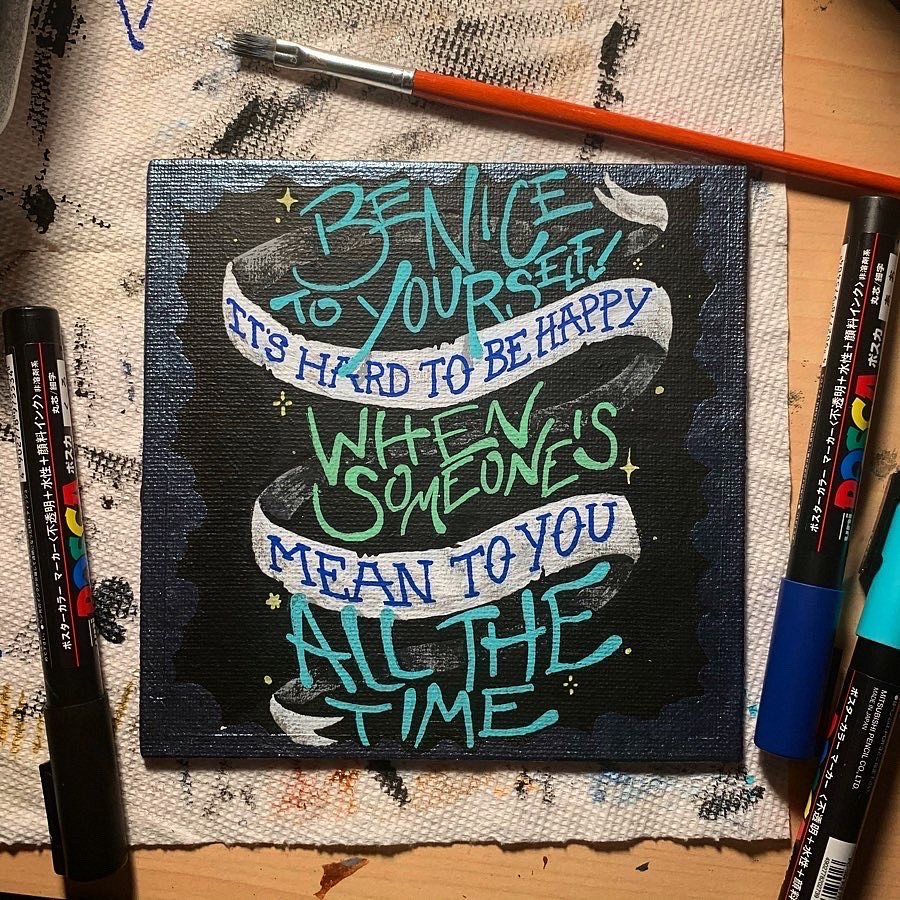 BE NICE
TO YOURSELF!
IT'S HARD TO BE HAPPY
WHEN
SOMEONE'S
MEAN TO YOU
ALL THE
TIME
ポスターカラーマーカー〈不透明+水性+顔料インク〉非溶剤系
丸芯/細字
POSCA ポスカ
ポスターカラーマーカー〈不透明+水性+顔料インク〉非溶剤系
丸芯/細字
POSCA ポスカ
MITSUBISHI PENCIL CO.,LTD.
MADE IN JAPAN
ポスターカラーマーカー〈不透明+水性+顔